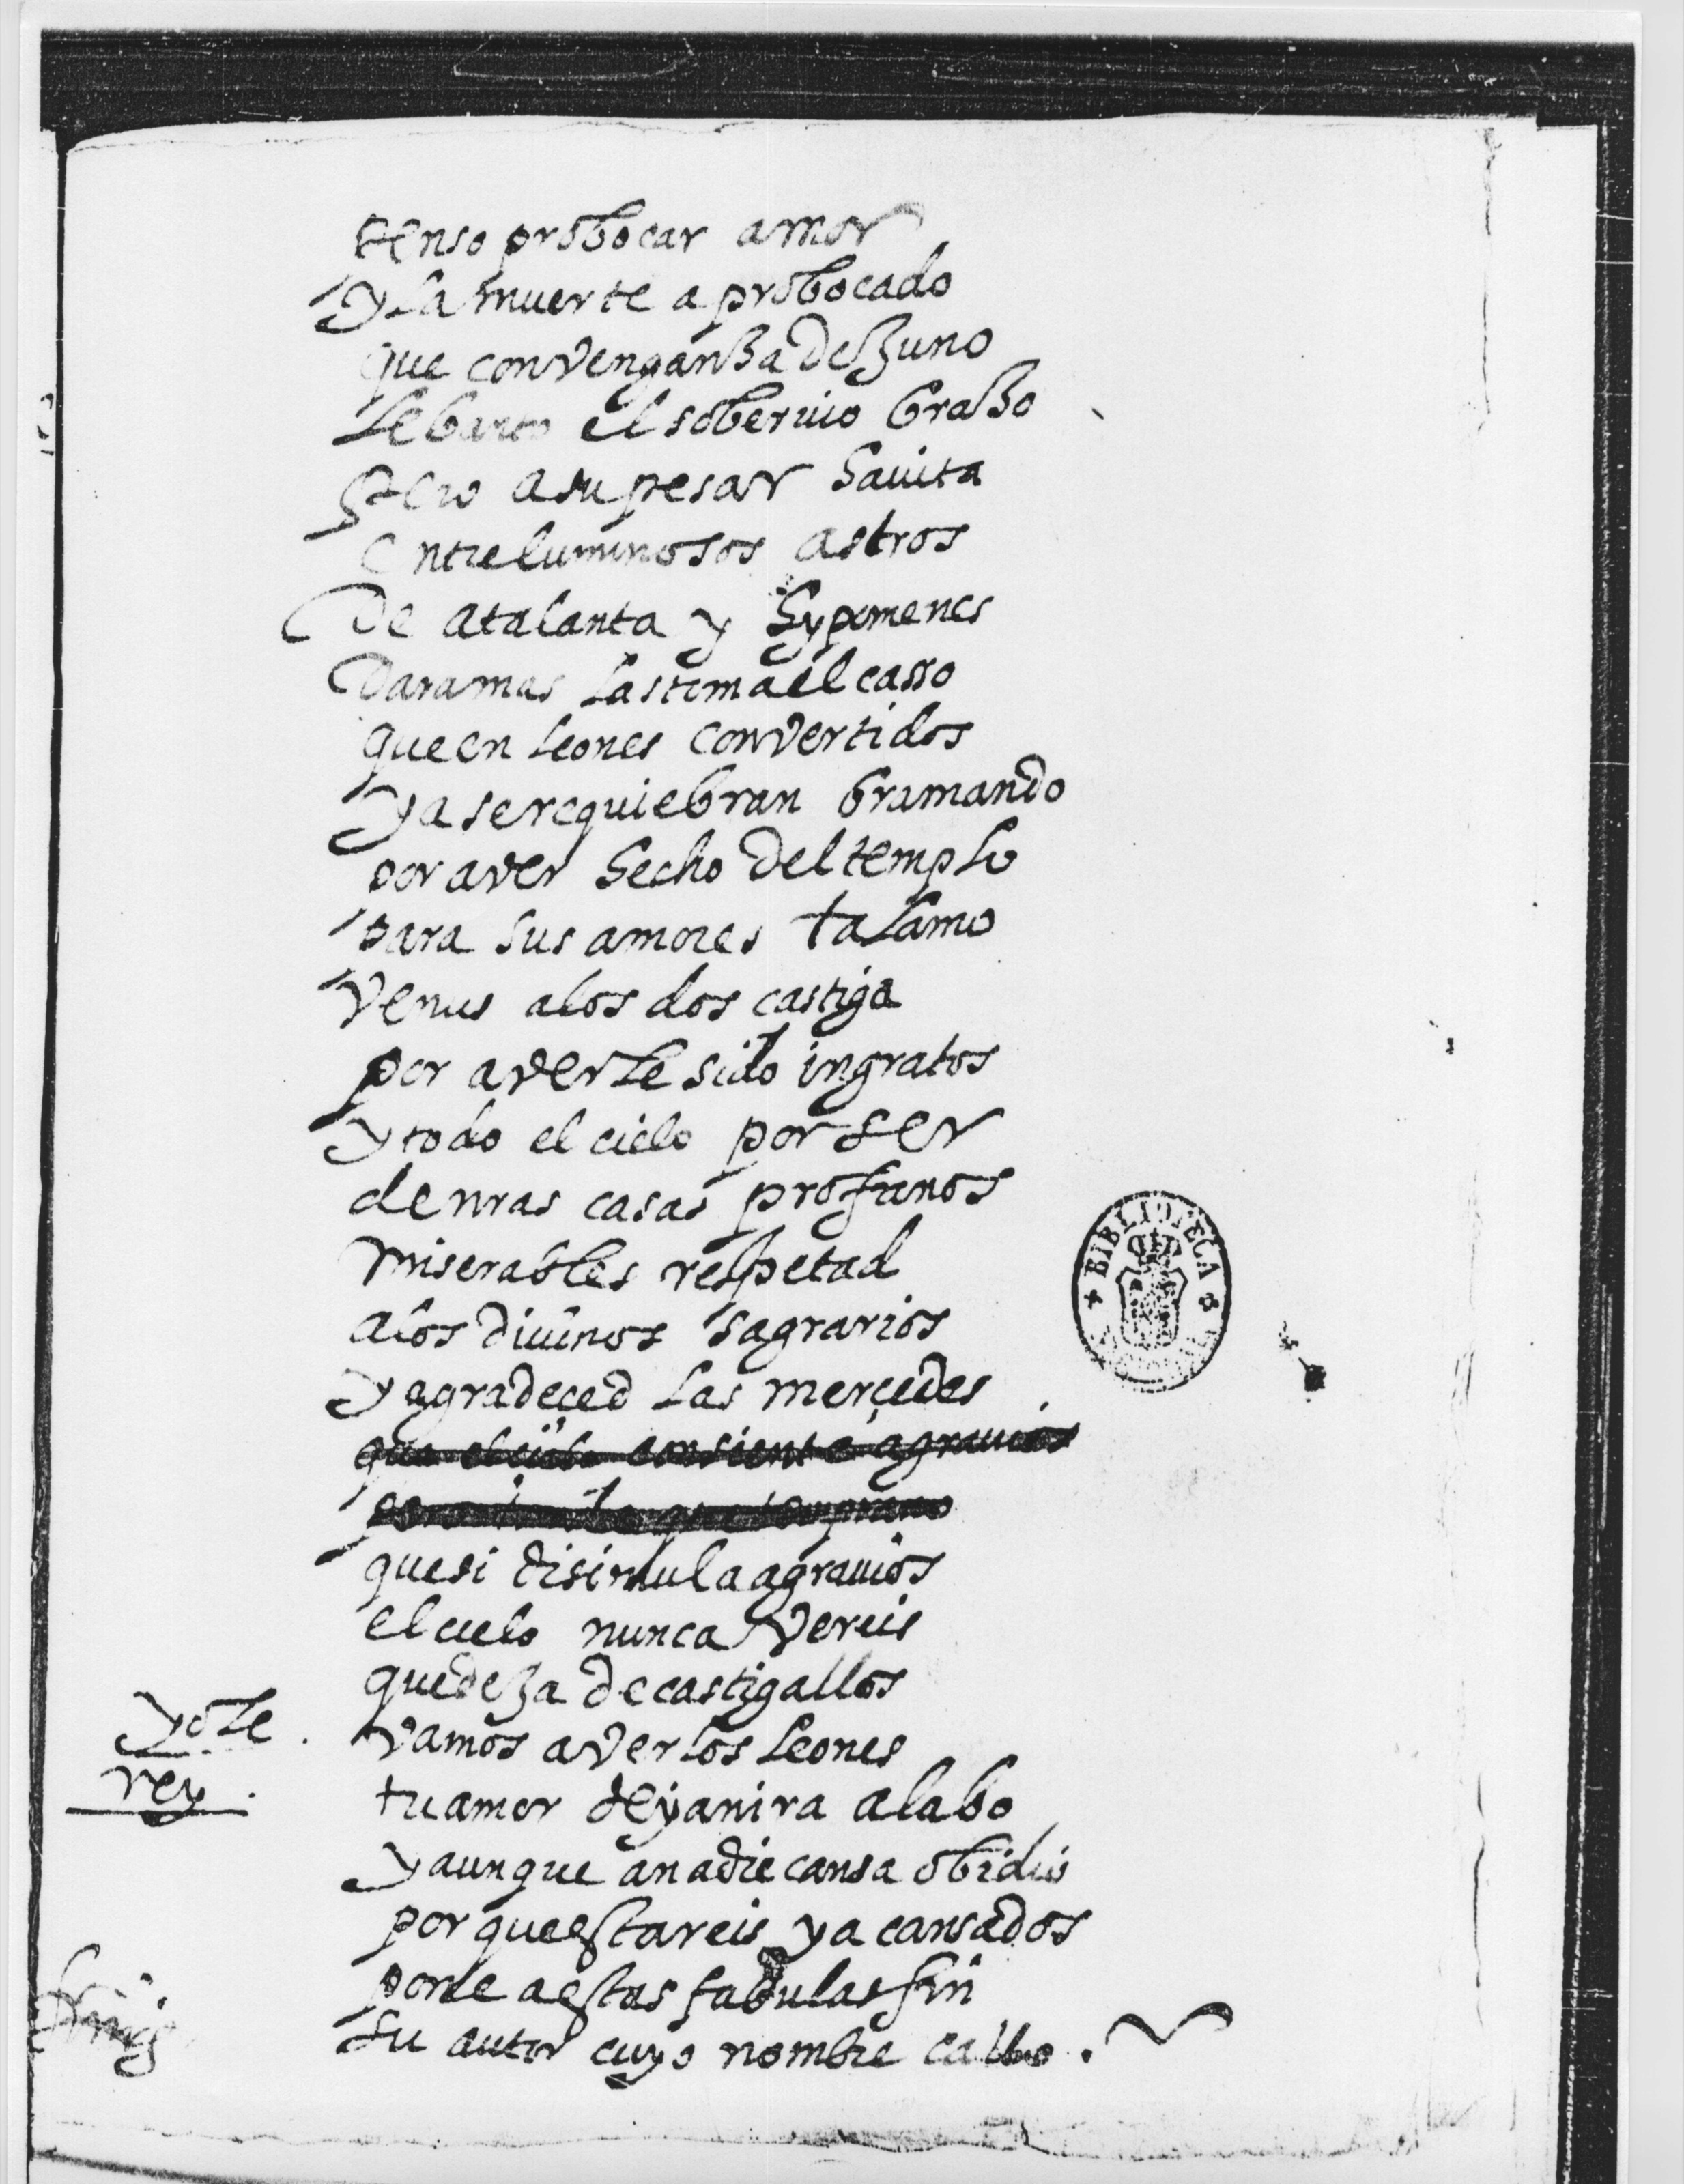 penso probocar amor
y la muerte a probocado
que con venganza de Juno
lebanto el soberuio brazo
pero a su pesar havita
entre luminosos astros
de atalanta y hypomenes
dara mas lastima el casso
que en leones convertidos
ya se requiebran bramando
por aver hecho del templo
para sus amores talamo
venus a los dos castiga
por averle sido ingratos
y todo el cielo por ser
de nras casas profanos
miserables respetad
a los diuinos sagrarios
y agradeced las merçedes
que el çielo consiente agrauios
que si disimula agrauios
el cielo nunca vereis
que deja de castigallos
yole. vamos a ver los leones
rey. tu amor deyanira alabo
y aunque a nadie cansa obidio
porque estareis ya cansados
pone a estas fabulas fin
su autor cuyo nombre callo.
finis
BIBLIOTECA NACIONAL